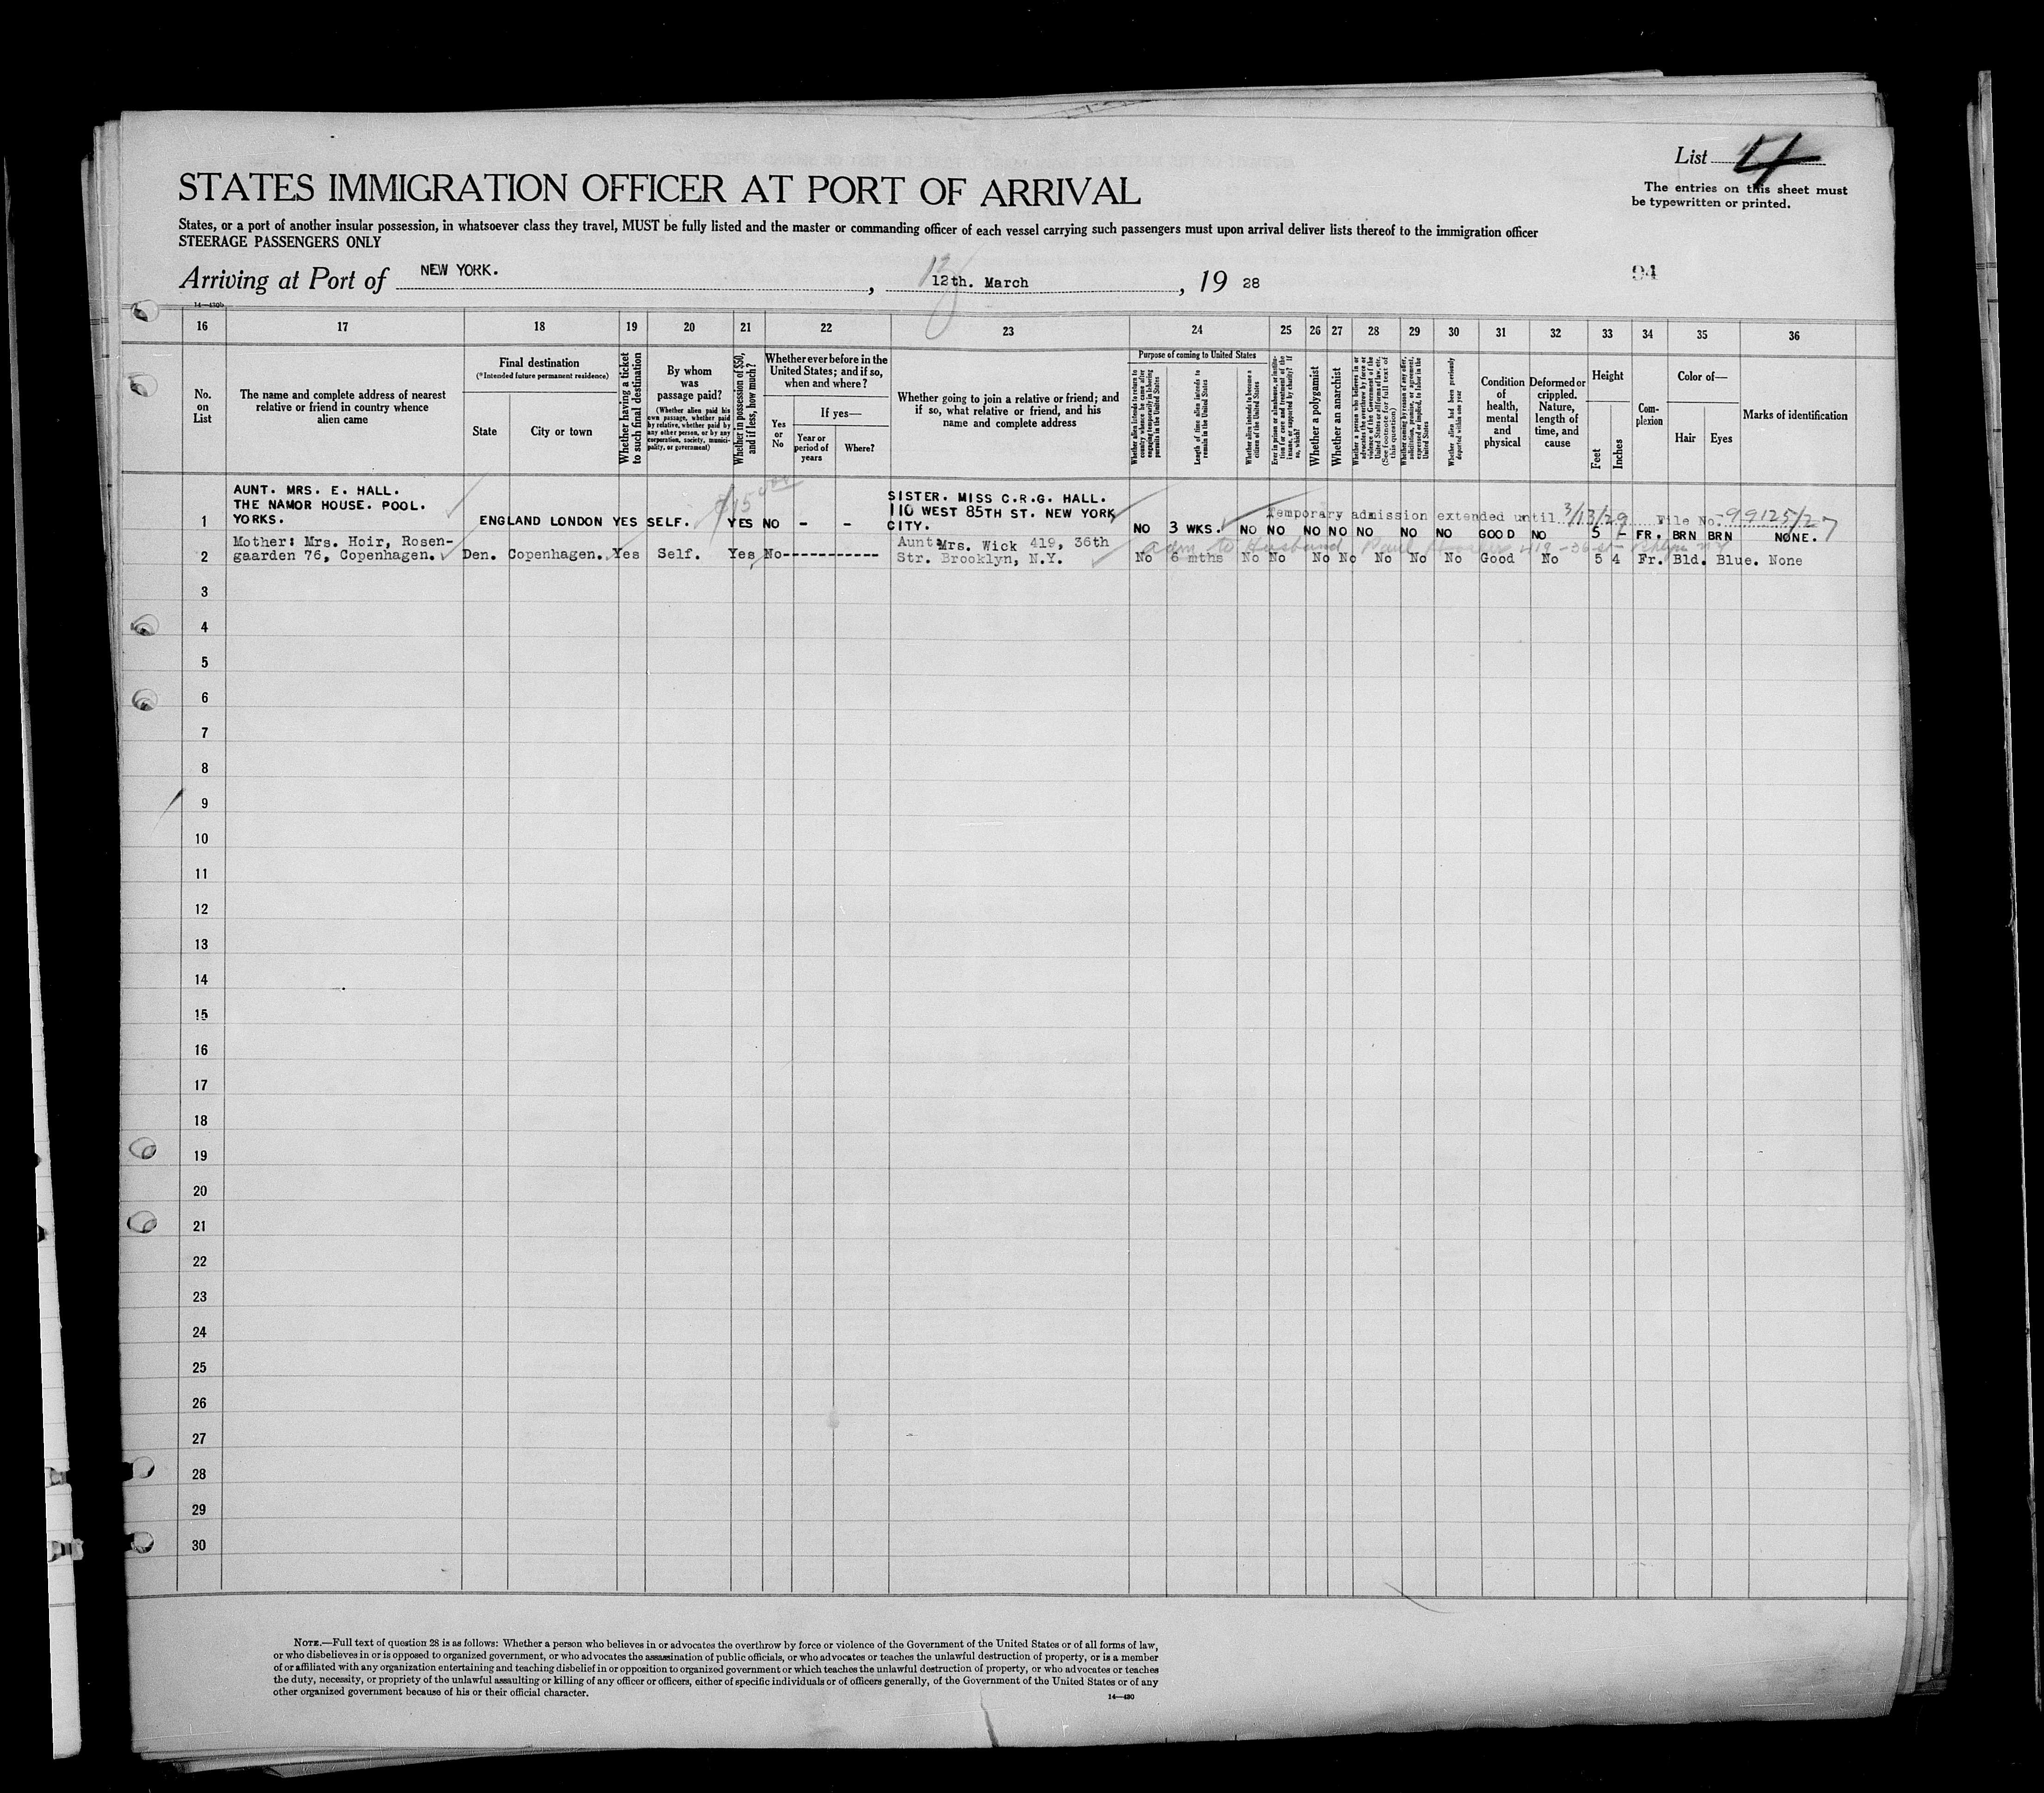 List 4
The entries on this sheet must
be typewritten or printed.
STATES IMMIGRATION OFFICER AT PORT OF ARRIVAL
States, or a port of another insular possession, in whatsoever class they travel, MUST be fully listed and the master or commanding officer of each vessel carrying such passengers must upon arrival deliver lists thereof to the immigration officer
STEERAGE PASSENGERS ONLY
Arriving at Port of NEW YORK. , 12th. March , 19 28
94
16 17 18 19 20 21 22 23 24 25 26 27 28 29 30 31 32 33 34 35 36
No.
on
List
The name and complete address of nearest
relative or friend in country whence
alien came
Final destination
(*Intended future permanent residence)
State
City or town
Whether having a ticket
to such final destination
By whom
was
passage paid?
(Whether alien paid his
own passage, whether paid
by relative, whether paid by
any other person, or by any
corporation, society, munici-
pality, or government)
Whether in possession of $50,
and if less, how much?
Whether ever before in the
United States; and if so,
when and where?
Yes
or
No
If yes—
Year or
period of
years
Where?
Whether going to join a relative or friend; and
if so, what relative or friend, and his
name and complete address
Purpose of coming to United States
Whether alien intends to return to
country whence he came after
engaging temporarily in laboring
pursuits in the United States
Length of time alien intends to
remain in the United States
Whether alien intends to become a
citizen of the United States
Ever in prison or almshouse, or institu-
tion for care and treatment of the
insane, or supported by charity? If
so, which?
Whether a polygamist
Whether an anarchist
Whether a person who believes in or
advocates the overthrow by force or
violence of the Government of the
United States or all forms of law, etc.
(See footnote for full text of
this question)
Whether coming by reason of any offer,
solicitation, promise, or agreement,
expressed or implied, to labor in the
United States
Whether alien had been previously
deported within one year
Condition
of
health,
mental
and
physical
Deformed or
crippled.
Nature,
length of
time, and
cause
Height
Feet
Inches
Com-
plexion
Color of—
Hair
Eyes
Marks of identification
1 AUNT. MRS. E. HALL.
THE NAMOR HOUSE. POOL.
YORKS.
ENGLAND LONDON YES SELF. YES NO - -
SISTER. MISS C.R.G. HALL.
110 WEST 85TH ST. NEW YORK
CITY.
Temporary admission extended until 3/13/29 File No. 99125/27
NO 3 WKS. NO NO NO NO NO NO NO GOOD NO 5 - FR. BRN BRN NONE.
2 Mother: Mrs. Hoir, Rosen-
gaarden 76, Copenhagen.
Den. Copenhagen. Yes Self. Yes No-----------
Aunt: Mrs. Wick 419, 36th
Str. Brooklyn, N.Y.
adm to Husband Paul
No 6 mths No No No No No No No Good No 5 4 Fr. Bld. Blue. None
3
4
5
6
7
8
9
10
11
12
13
14
15
16
17
18
19
20
21
22
23
24
25
26
27
28
29
30
NOTE.—Full text of question 28 is as follows: Whether a person who believes in or advocates the overthrow by force or violence of the Government of the United States or of all forms of law,
or who disbelieves in or is opposed to organized government, or who advocates the assassination of public officials, or who advocates or teaches the unlawful destruction of property, or is a member
of or affiliated with any organization entertaining and teaching disbelief in or opposition to organized government or which teaches the unlawful destruction of property, or who advocates or teaches
the duty, necessity, or propriety of the unlawful assaulting or killing of any officer or officers, either of specific individuals or of officers generally, of the Government of the United States or of any
other organized government because of his or their official character.
14—430